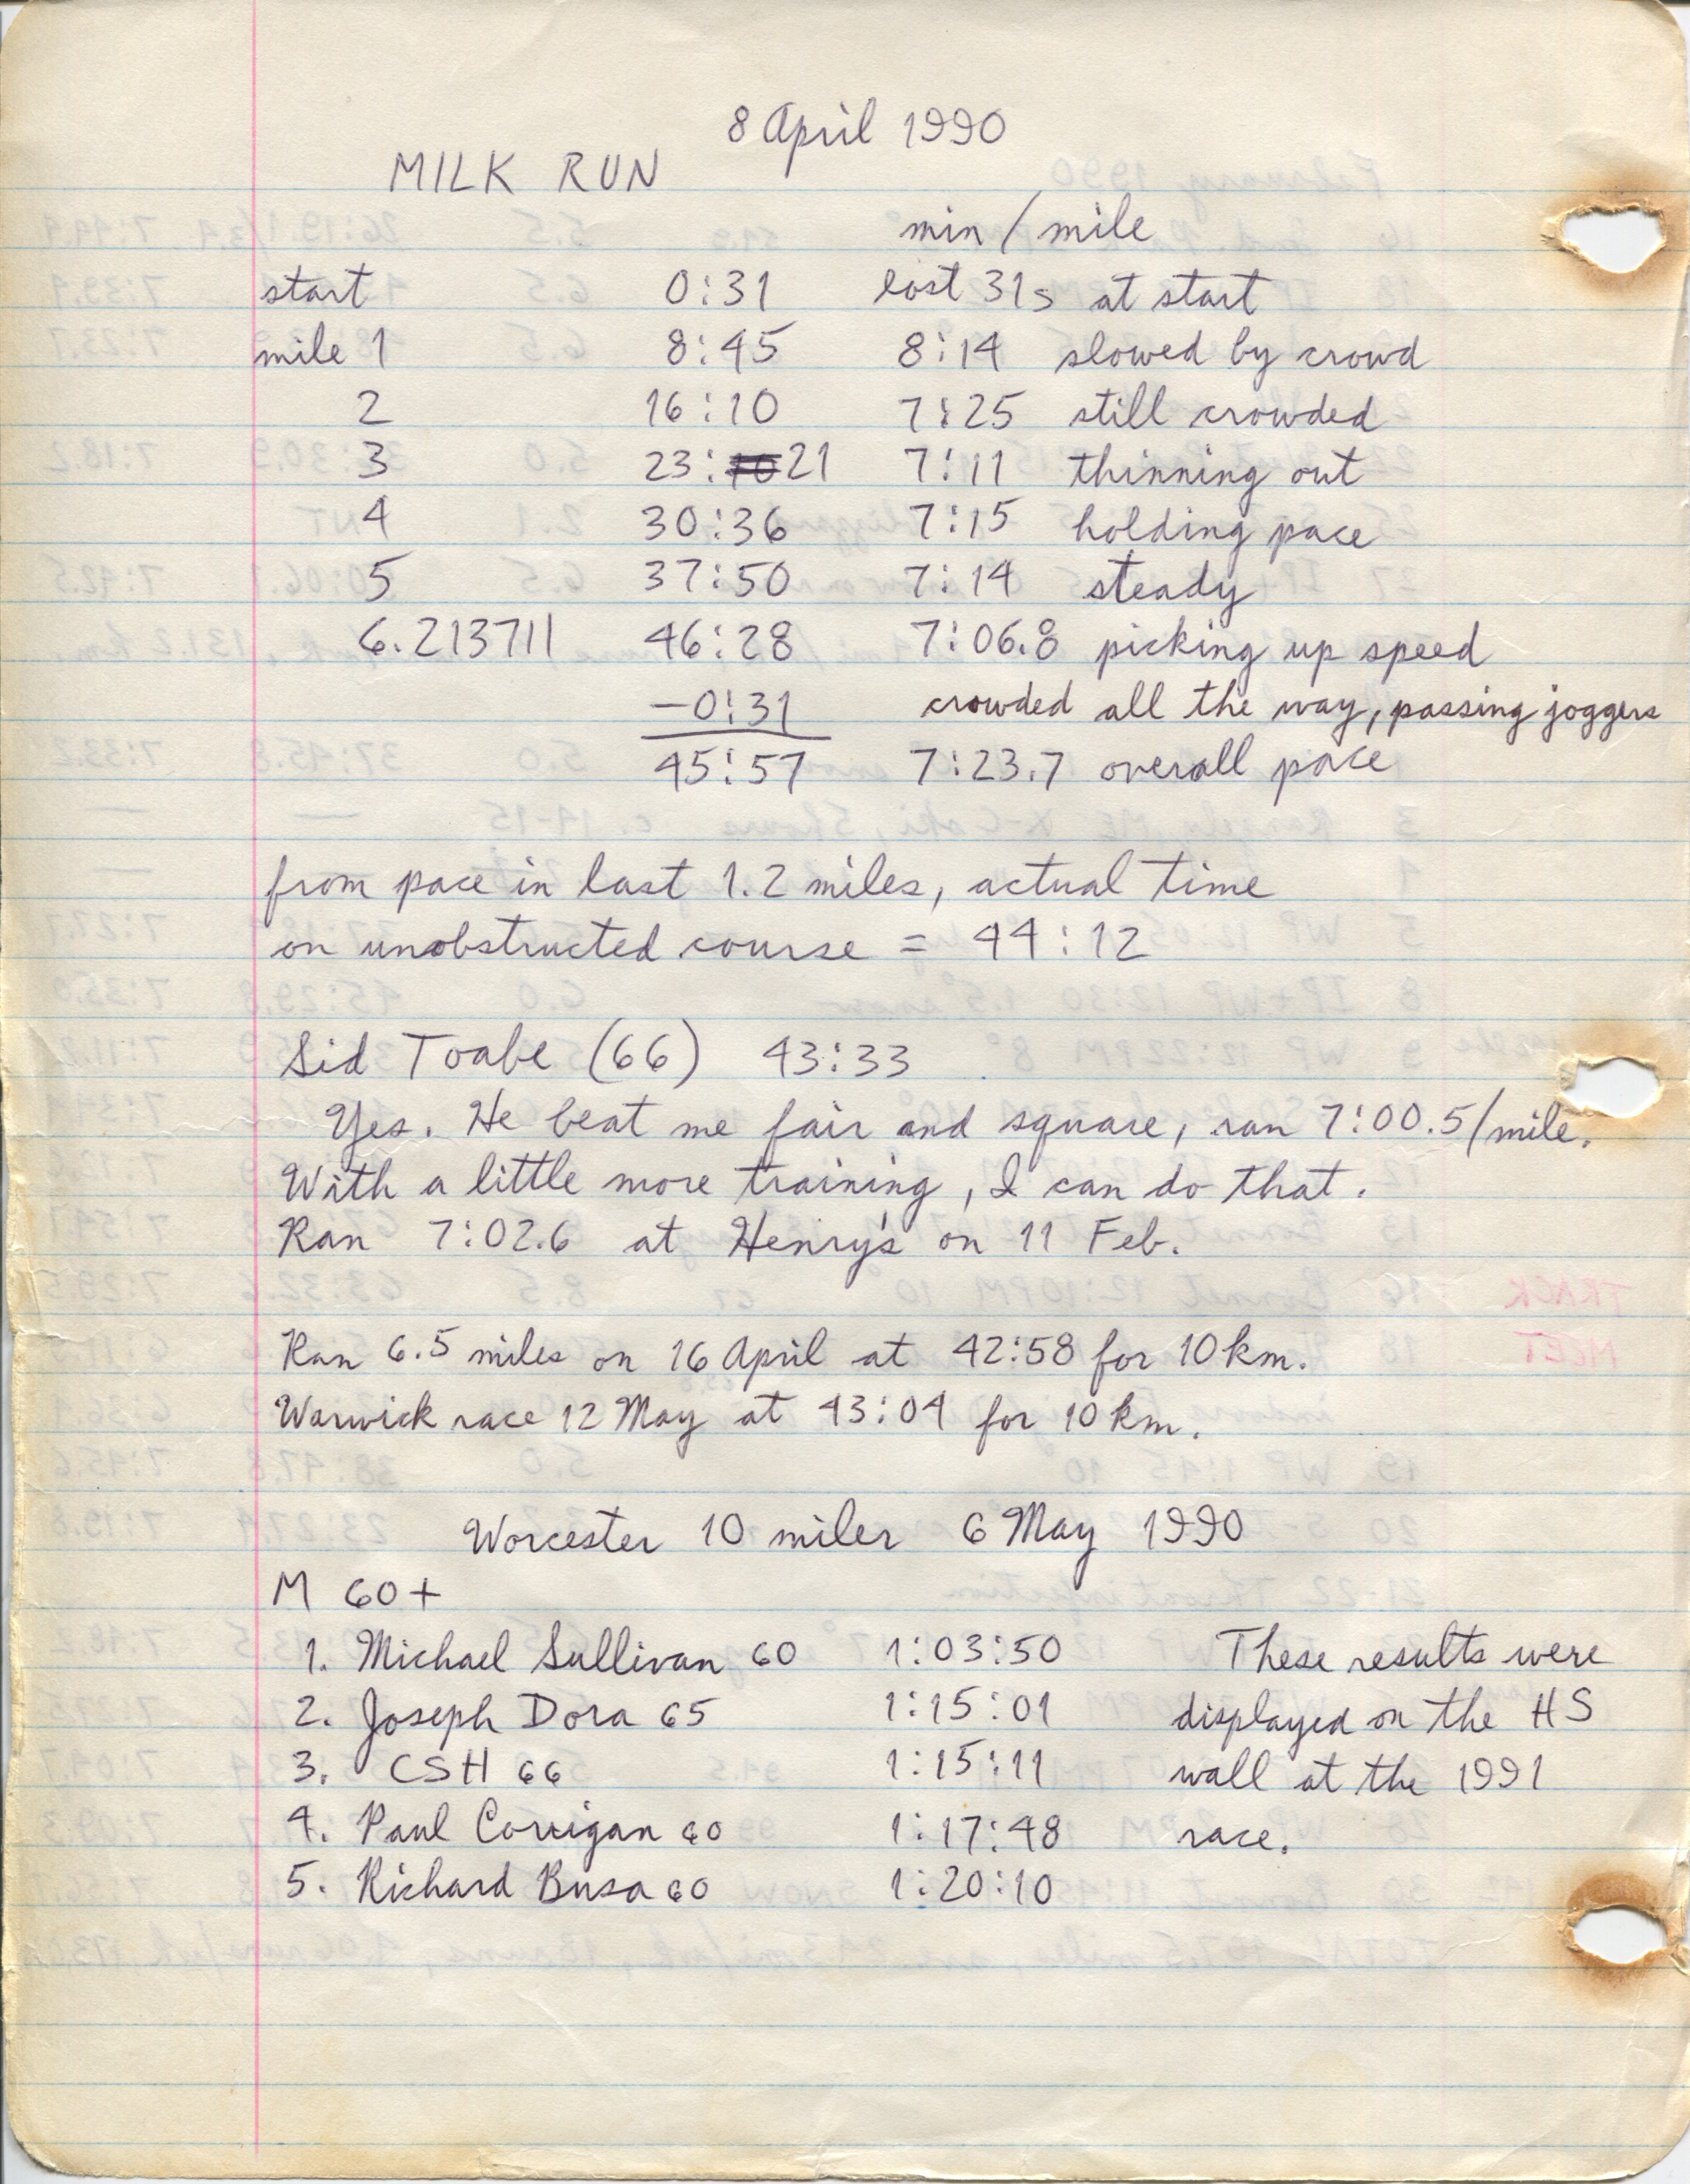 8 April 1990
MILK RUN
min / mile
start 0:31 lost 31s at start
mile 1 8:45 8:14 slowed by crowd
2 16:10 7:25 still crowded
3 23:10 21 7:11 thinning out
4 30:36 7:15 holding pace
5 37:50 7:14 steady
6.213711 46:28 7:06.8 picking up speed
-0:31 crowded all the way, passing joggers
45:57 7:23.7 overall pace
from pace in last 1.2 miles, actual time
on unobstructed course = 44:12
Sid Toabe (66) 43:33
Yes. He beat me fair and square, ran 7:00.5/mile.
With a little more training, I can do that.
Ran 7:02.6 at Henry's on 11 Feb.
Ran 6.5 miles on 16 April at 42:58 for 10 km.
Warwick race 12 May at 43:04 for 10 km.
Worcester 10 miler 6 May 1990
M 60+
1. Michael Sullivan 60 1:03:50 These results were
2. Joseph Dora 65 1:15:01 displayed on the HS
3. CSH 66 1:15:11 wall at the 1991
4. Paul Corrigan 60 1:17:48 race.
5. Richard Busa 60 1:20:10